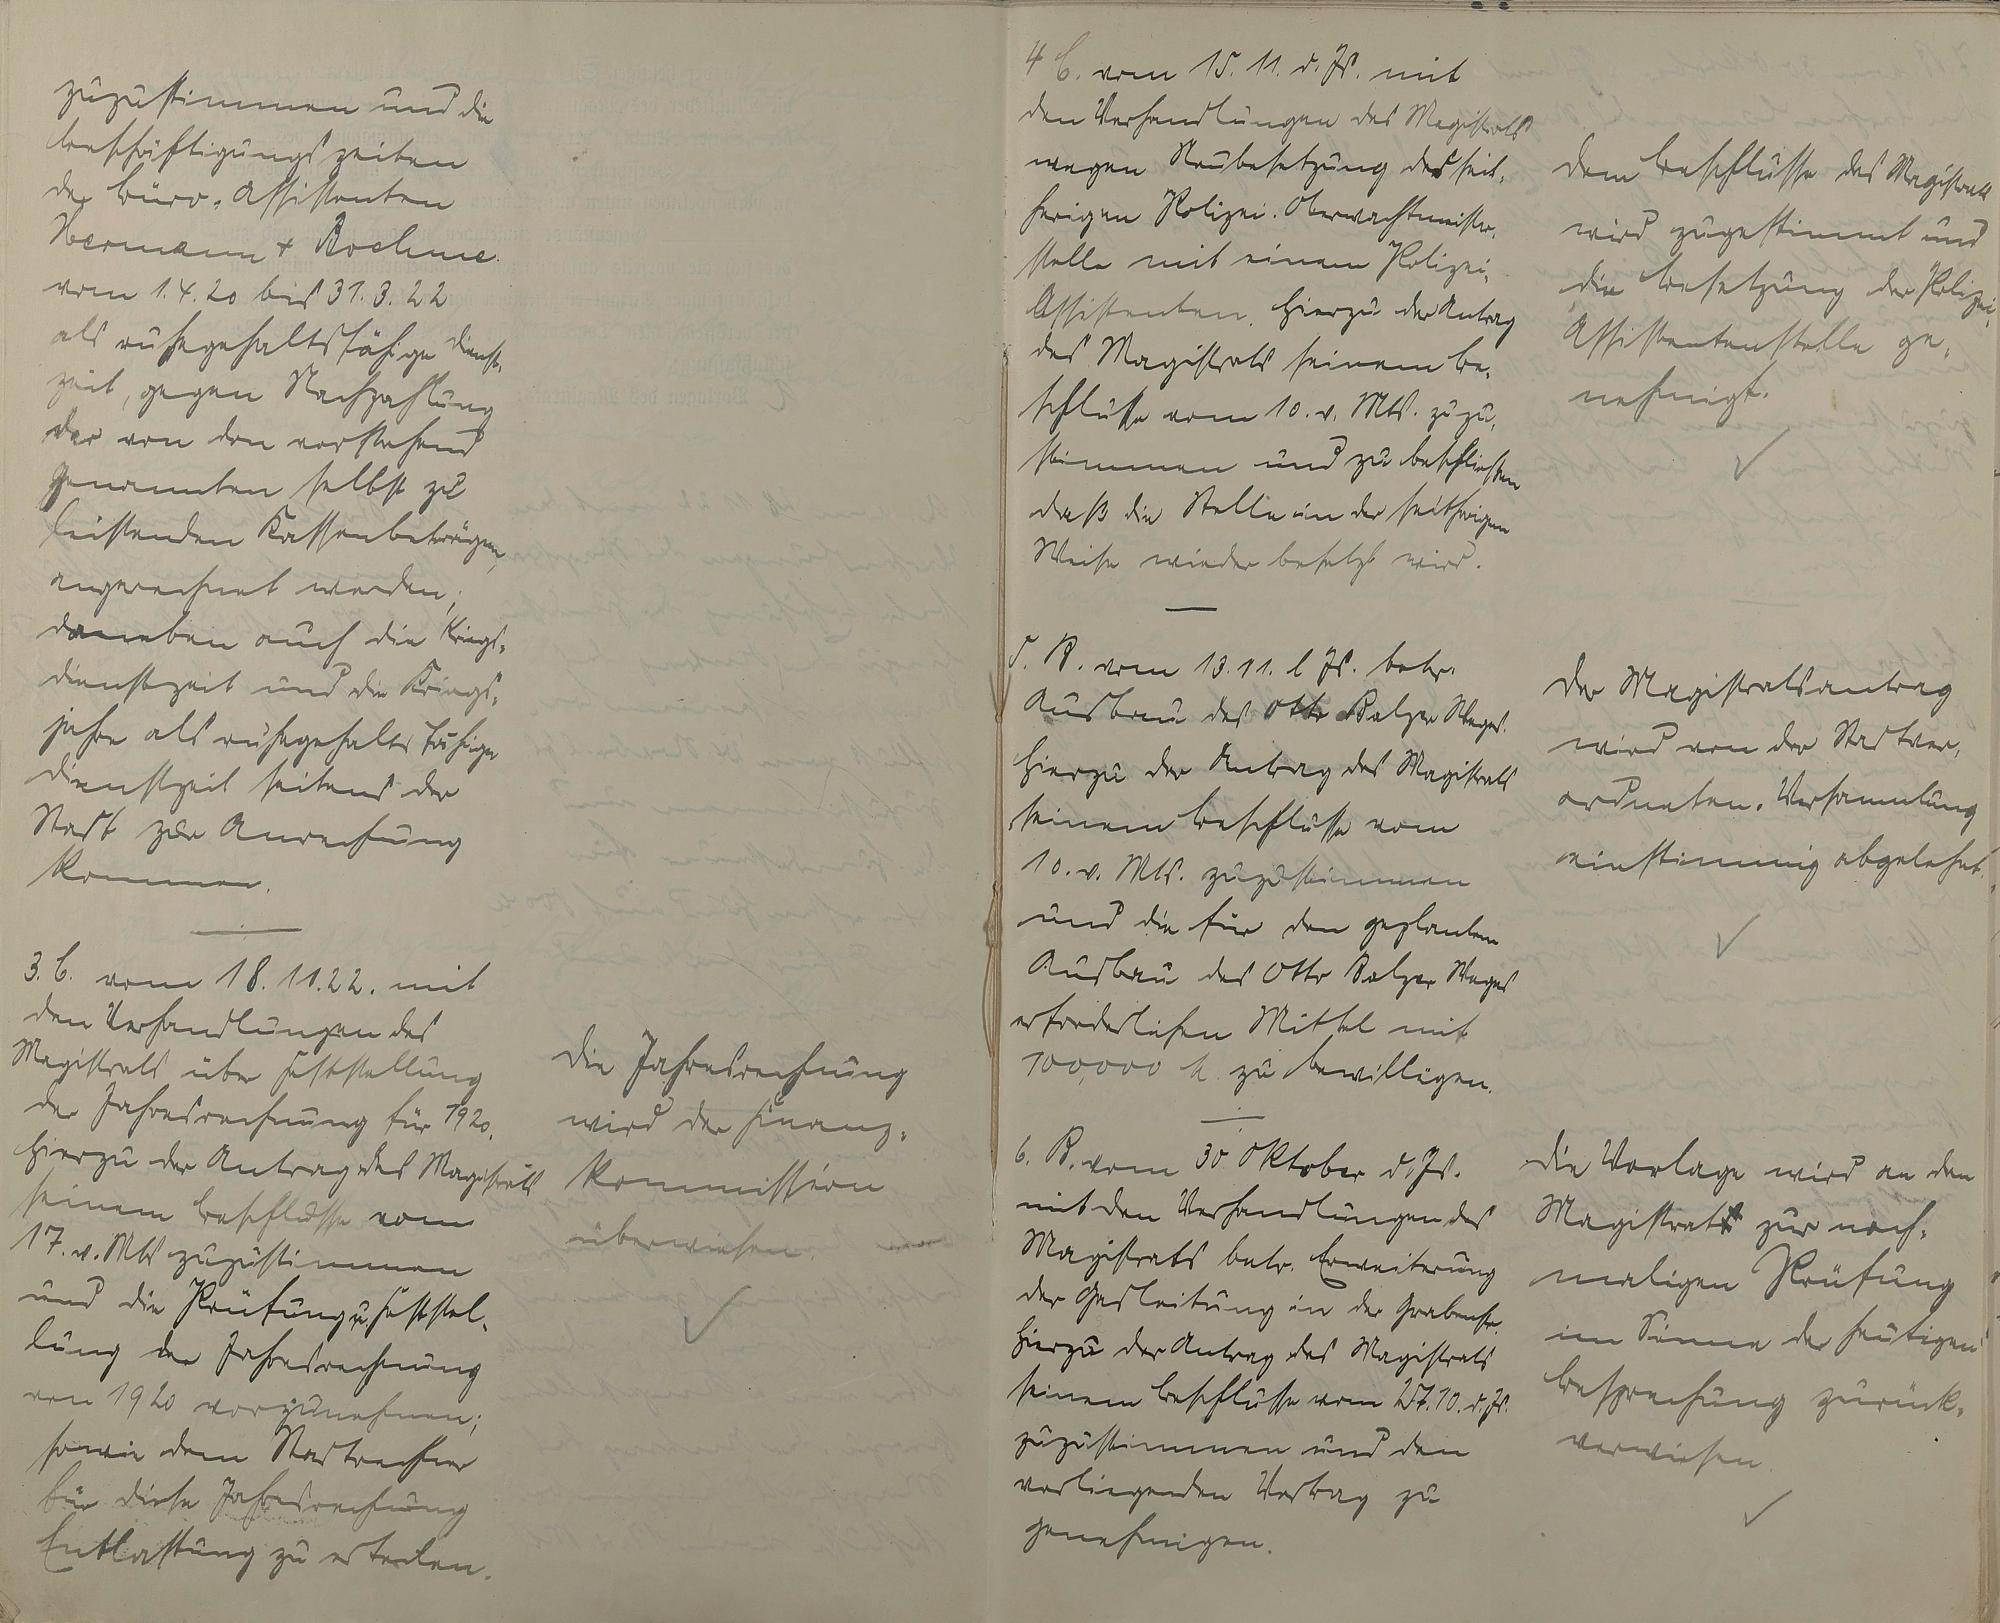 zuzustimmen und die
Beschäftigungszeiten
der Büro-Assistenten
Hermann + Boehme
vom 1.4.20 bis 31.3.22
als ruhegehaltsfähige Dienst-
zeit, gegen Nachzahlung
der von den vorstehend
Genannten selbst zu
leistenden Kassenbeträgen,
angerechnet werden,
daneben auch die Kriegs-
dienstzeit und die Kriegs-
jahre als ruhegehaltsfähige
Dienstzeit seitens der
Stadt zur Anrechnung
kommen.
3. B. vom 18.11.22. mit
den Verhandlungen des
Magistrats über Feststellung
der Jahresrechnung für 1920.
Hierzu der Antrag des Magistrats
seinem Beschlusse vom
17. v. Mts zuzustimmen
und die Prüfung u. Feststel-
lung der Jahresrechnung
von 1920 vorzunehmen;
sowie dem Stadtrechner
für diese Jahresrechnung
Entlastung zu erteilen.
Die Jahresrechnung
wird der Finanz-
kommission
überwiesen.
4 B. vom 15.11. d. Js. mit
den Verhandlungen des Magistrats
wegen Neubesetzung der seit-
herigen Polizei-Oberwachtmeister-
stelle mit einem Polizei-
Assistenten. Hierzu der Antrag
des Magistrats seinem Be-
schlusse vom 10. v. Mts. zuzu-
stimmen und zu beschließen
daß die Stelle in der seitherigen
Weise wieder besetzt wird.
Dem Beschlusse des Magistrats
wird zugestimmt und
die Besetzung der Polizei-
Assistentenstelle ge-
nehmigt.
5. B. vom 13.11. l Js. betr.
Ausbau des Otto Balzer Weges.
Hierzu der Antrag des Magistrats
seinem Beschlusse vom
10. v. Mts. zuzustimmen
und die für den geplanten
Ausbau des Otto Balzer Weges
erforderlichen Mittel mit
100,000 M. zu bewilligen.
Der Magistratsantrag
wird von der Stadtver-
ordneten-Versammlung
einstimmig abgelehnt.
6. B. vom 30 Oktober d. Js.
mit den Verhandlungen des
Magistrats betr. Erweiterung
der Gasleitung in der Grabenstr.
Hierzu der Antrag des Magistrats
seinem Beschlusse vom 27.10. d. Js.
zuzustimmen und den
vorliegenden Vertrag zu
genehmigen.
Die Vorlage wird an den
Magistrat zur noch-
maligen Prüfung
im Sinne der heutigen
Besprechung zurück-
verwiesen.